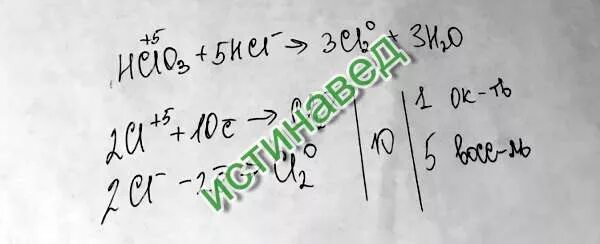 HClO₃ + 5HCl⁻ → 3Cl₂⁰ + 3H₂O
+5
2Cl⁺⁵ + 10e → | 10 | 1 ок-ль
2Cl⁻ - 2 Cl₂⁰ | 5 восс-ль
истинавед